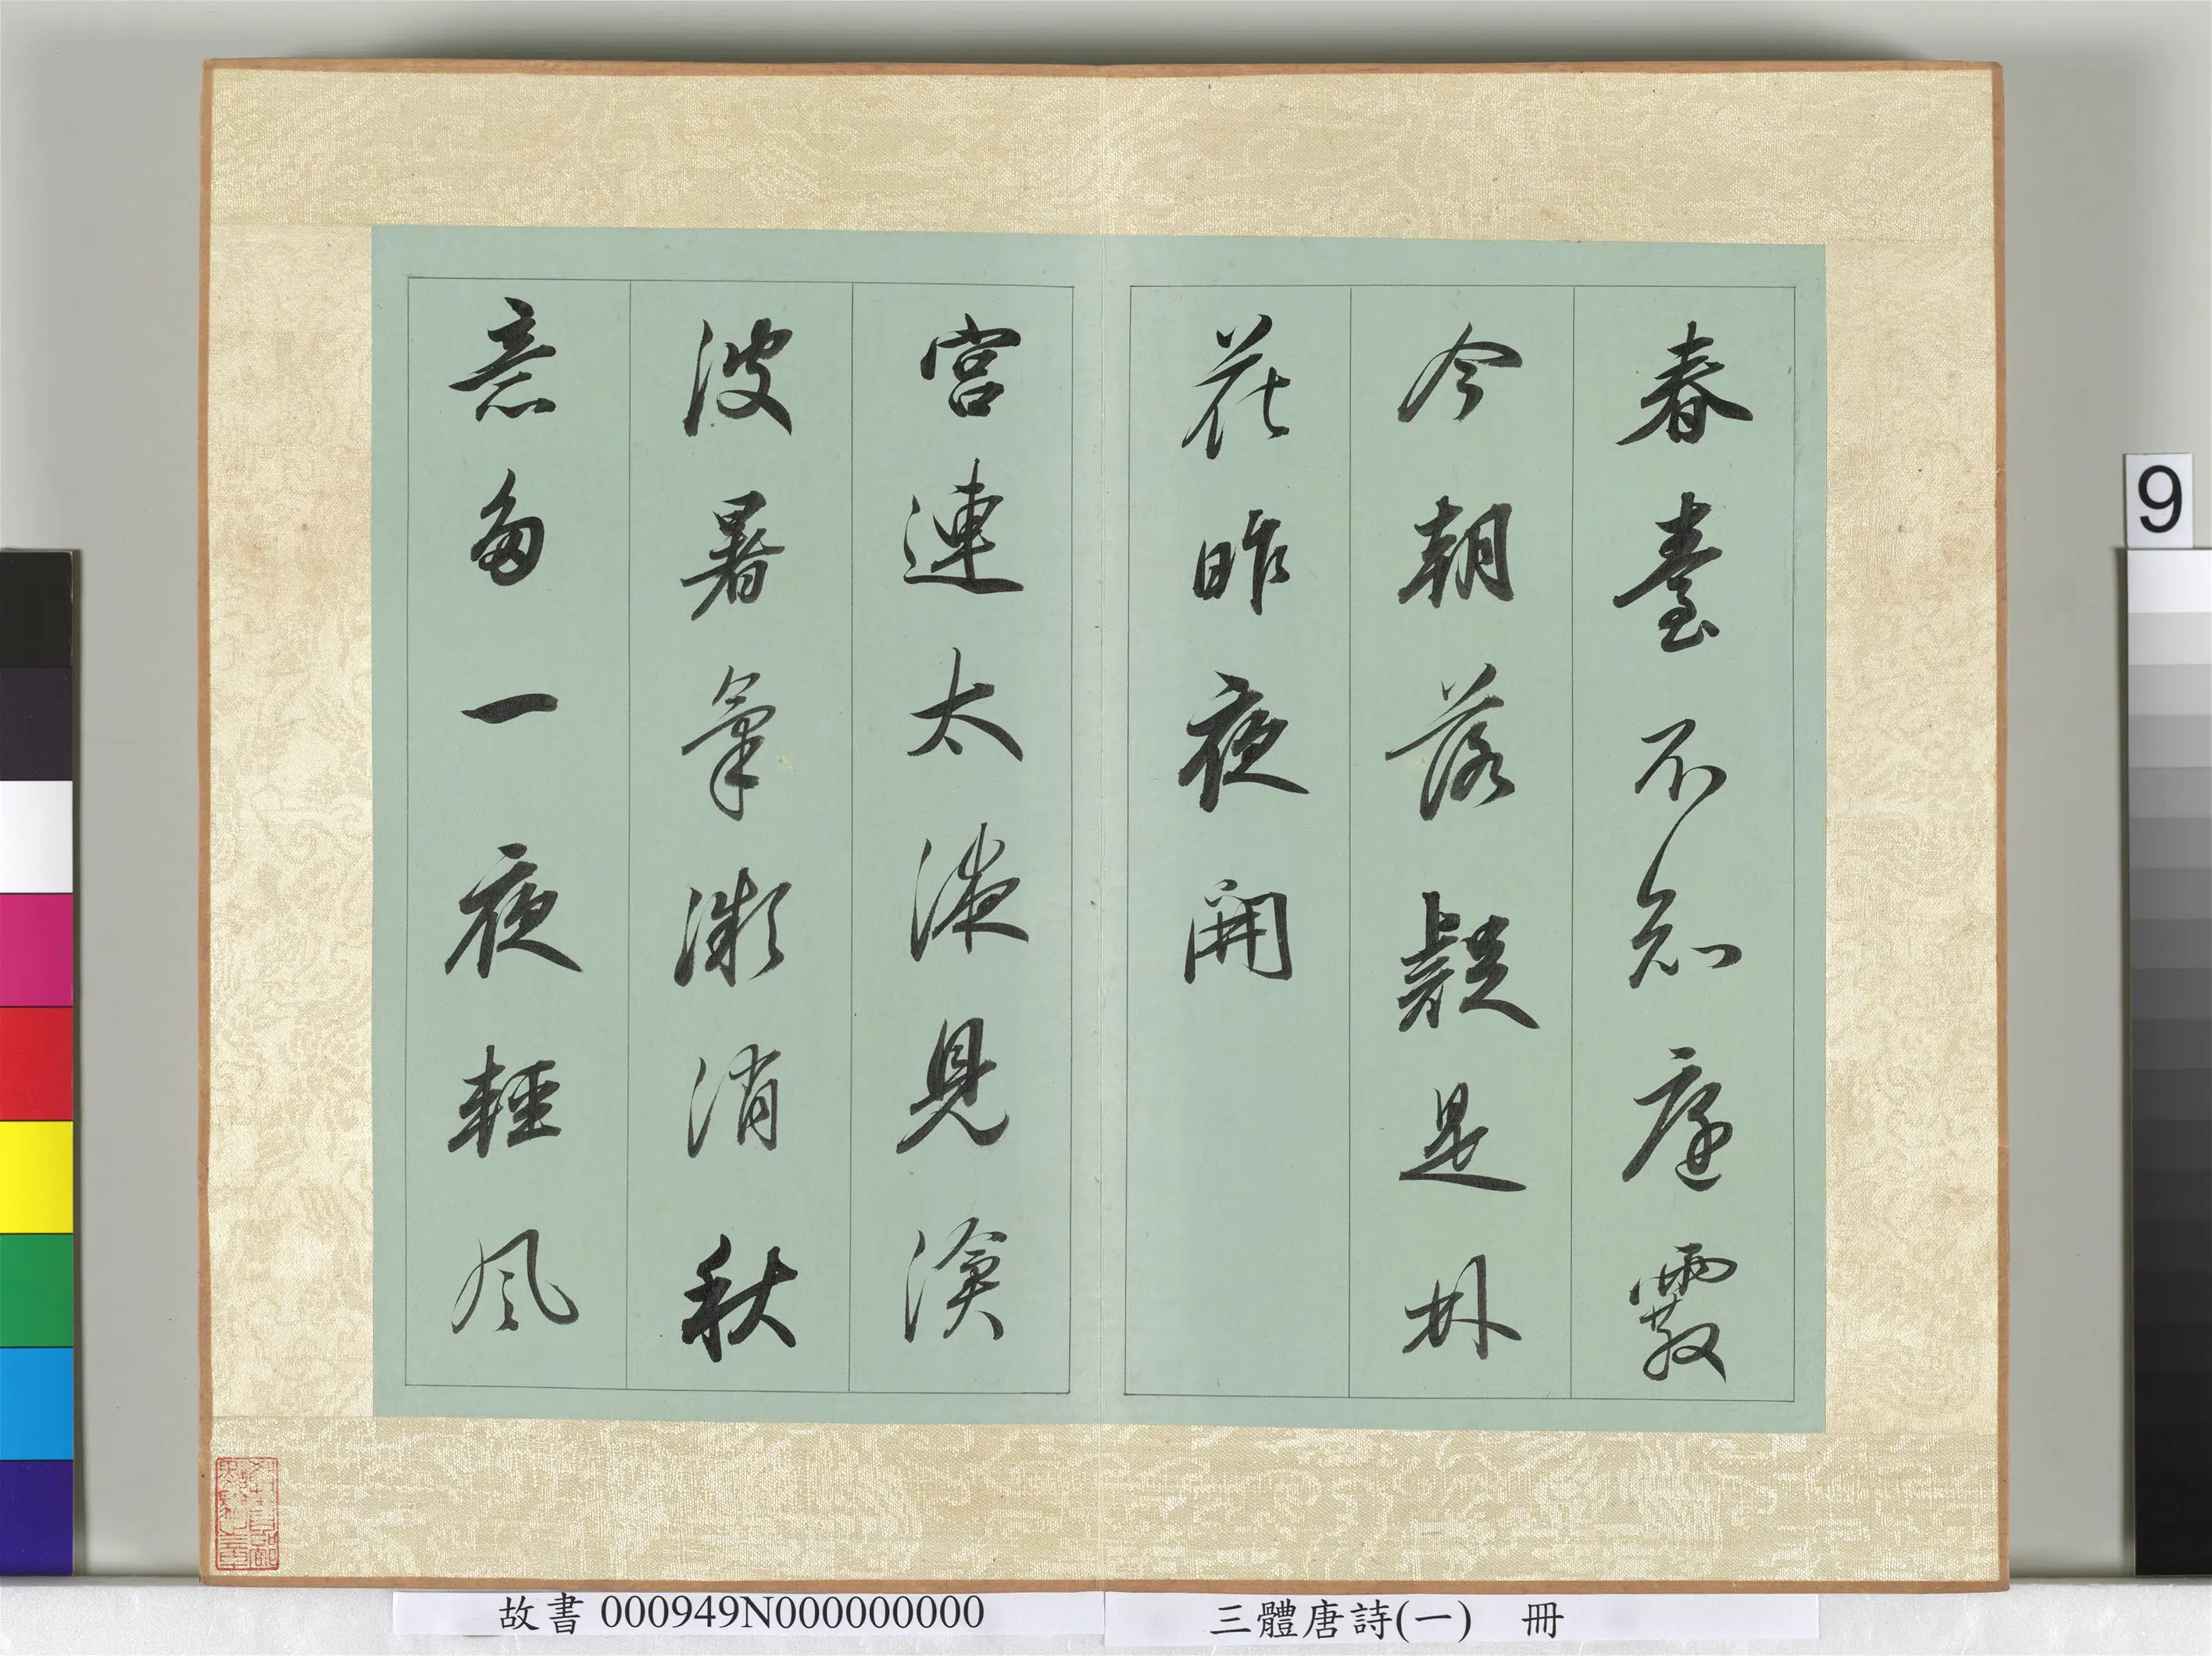 春臺不知庭霰
今朝落疑是林
花昨夜開
宮連太液見滄
波暑氣微消秋
意多一夜輕風
故書 000949N000000000
三體唐詩(一) 冊
9